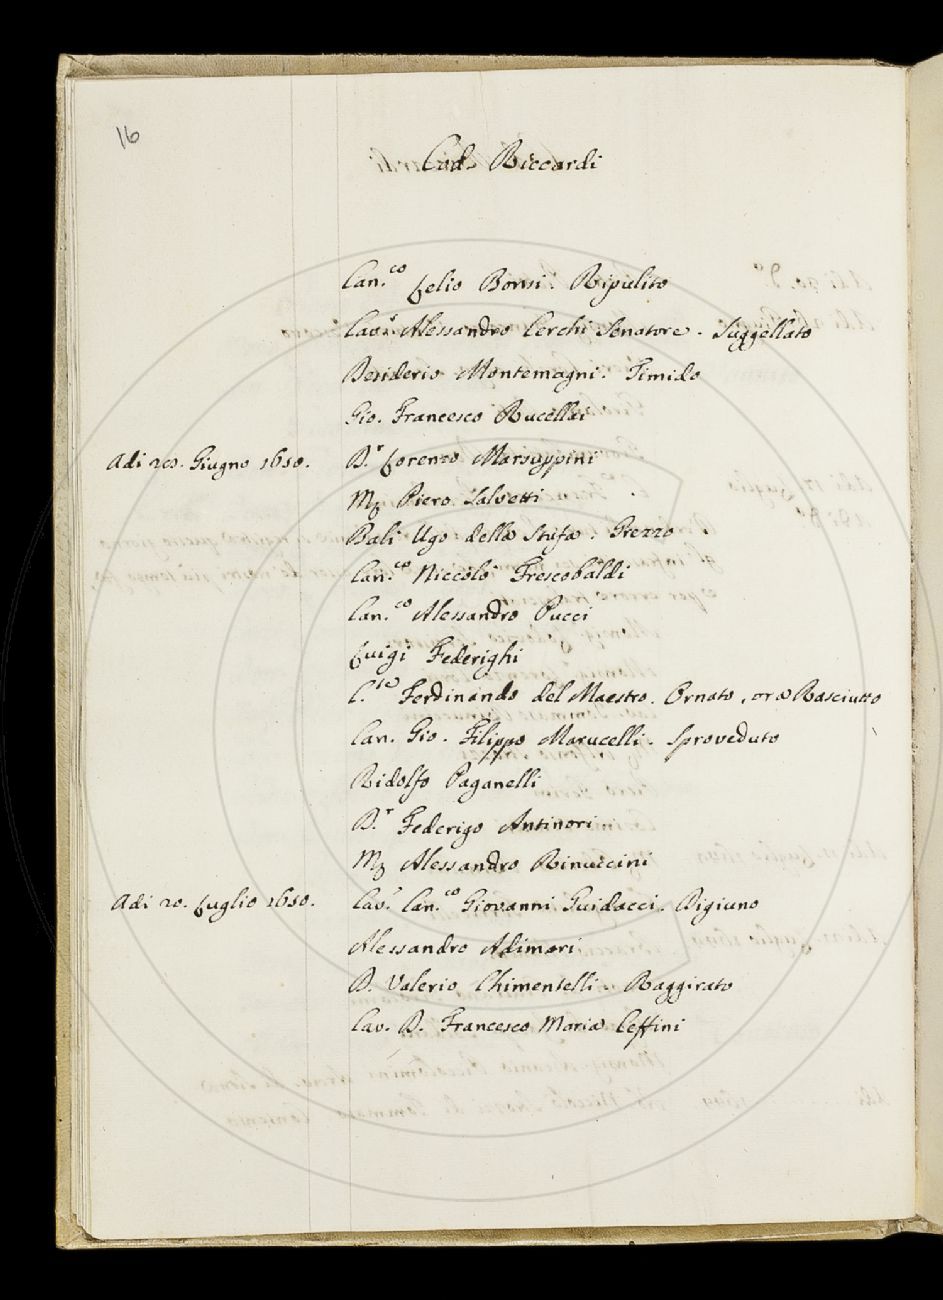 16
Cod. Riccardi
Can.co Lelio Bonsi. Ripulito
Cav.r Alessandro Cerchi Senatore. Suggellato
Desiderio Montemagni. Timido
Gio. Francesco Rucellai
Adi 20. Giugno 1650. D.r Lorenzo Marsuppini
Piero Salvetti
Balì Ugo della Stufa. Grezzo
Can.co Niccolò Frescobaldi
Can.co Alessandro Pucci
Luigi Federighi
C.te Ferdinando del Maestro. Ornato, ora Rasciutto
Can. Gio. Filippo Marucelli. Sproveduto
Ridolfo Paganelli
D.r Federigo Antinori
Alessandro Rinuccini
Adi 20. Luglio 1650. Cav.r Can.co Giovanni Guidacci. Digiuno
Alessandro Adimari
D. Valerio Chimentelli. Raggirato
Cav. D. Francesco Maria Ceffini